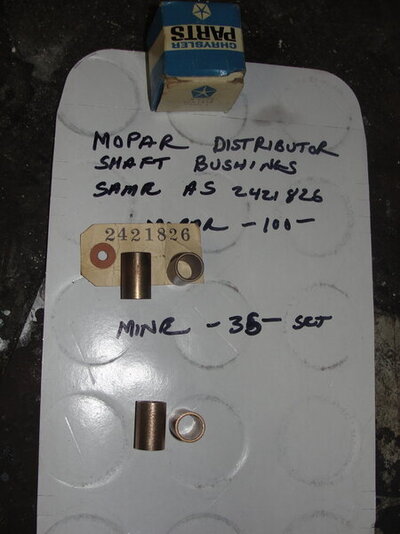 CHRYSLER
PARTS
MOPAR DISTRIBUTOR
SHAFT BUSHINGS
SAMR AS 2421826
MOPAR -100-
2421826
MINR -35- SET